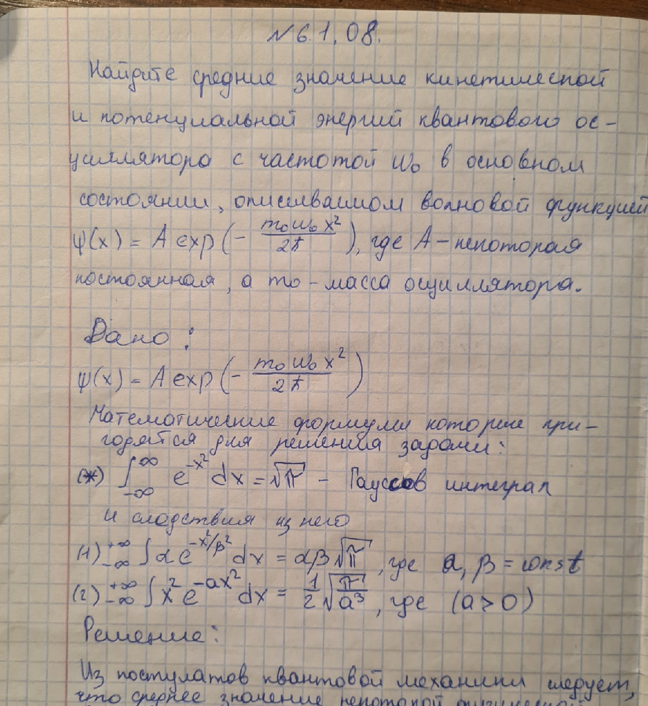 №6.1.08.
Найдите средние значение кинетической
и потенциальной энергий квантового ос-
циллятора с частотой ω₀ в основном
состоянии, описываемом волновой функцией
ψ(x) = A exp(- m₀ω₀x²/2ħ), где A - некоторая
постоянная, а m₀ - масса осциллятора.
Дано:
ψ(x) = A exp(- m₀ω₀x²/2ħ)
Математические формулы которые при-
годятся для решения задачи:
(*) ∫_{-∞}^{∞} e^{-x²} dx = √π - Гауссов интеграл
и следствия из него
(1) _{-∞}^{+∞}∫ αe^{-x²/β²} dx = αβ√π, где α, β = const
(2) _{-∞}^{+∞}∫ x² e^{-ax²} dx = 1/2 √(π/a³), где (a>0)
Решение:
Из постулатов квантовой механики следует,
что среднее значение некоторой физической